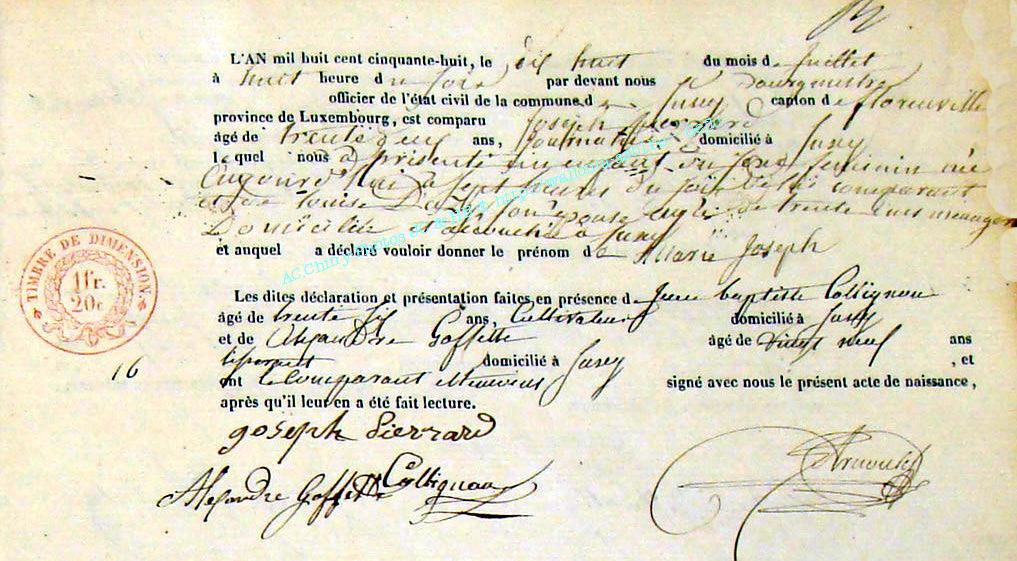 L'AN mil huit cent cinquante-huit, le dix huit du mois de Juillet
à huit heure du soir par devant nous Bourgmestre
officier de l'état civil de la commune de Jusey canton de florenville
province de Luxembourg, est comparu Joseph pierrard
âgé de trente ans, Journalier domicilié à Jusey
lequel nous a présenté un enfant du sexe feminin née
aujourd'hui a sept heures du soir de lui comparant
et de Louise son épouse agée de trente ans menagere
Domiciliée et accouchée a Jusey
et auquel a déclaré vouloir donner le prénom de Marie Joseph
Les dites déclaration et présentation faites en présence de Jean baptiste Collignon
âgé de trente six ans, Cultivateur domicilié à Jusey
et de Alexandre Goffette âgé de vingt neuf ans
domicilié à Jusey, et
ont le Comparant et temoins signé avec nous le présent acte de naissance,
après qu'il leur en a été fait lecture.
joseph Pierrard
Alexandre Goffette Collignon
TIMBRE DE DIMENSION.
1fr.
20c
16